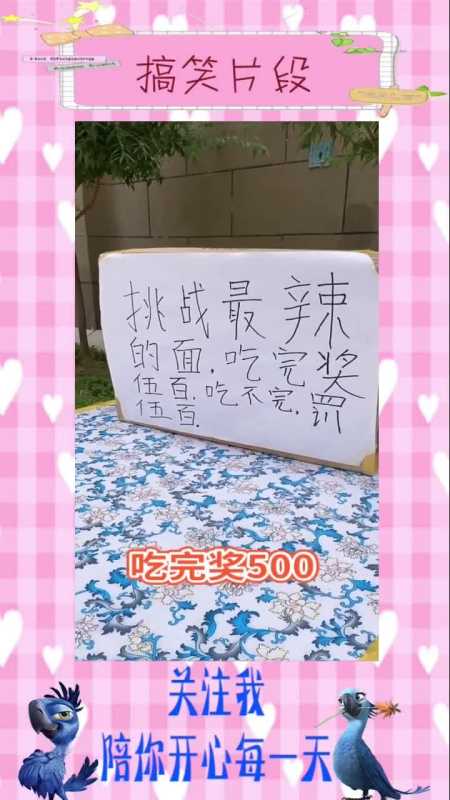 搞笑片段
挑战最辣
的面,吃完奖
伍百,吃不完,罚
伍百.
吃完奖500
关注我
陪你开心每一天